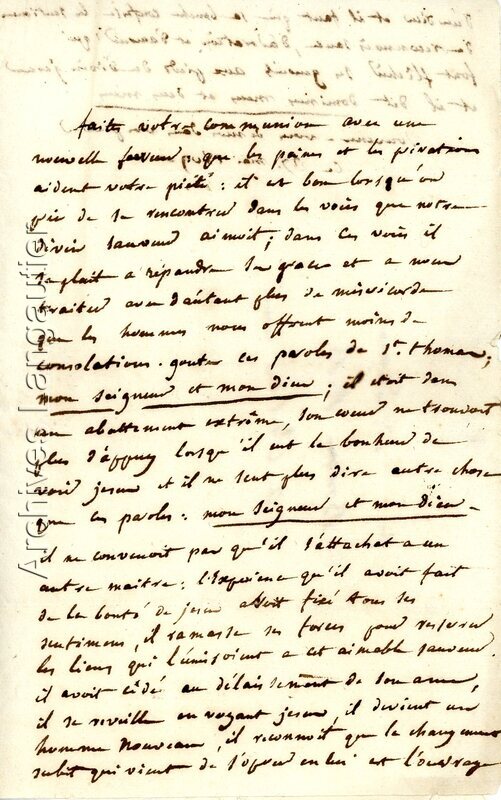 faites votre communion avec une
nouvelle ferveur, que les peines et les privations
aident votre piété: il est bon lorsqu'on
prie de se rencontrer dans les voies que notre
divin sauveur aimoit; dans ces voies il
se plait a répandre sa grace et a nous
traiter avec d'autant plus de misericorde
que les hommes nous offrent moins de
consolations. goutez ces paroles de St. thomas;
mon seigneur et mon dieu; il etoit dans
un abattement extrême, son coeur ne trouvoit
plus d'appuy lorsqu'il eut le bonheur de
voir jesus et il ne sent plus dire autre chose
que ces paroles: mon seigneur et mon dieu
il ne convenoit pas qu'il s'attachat a un
autre maitre: l'expérience qu'il avoit fait
de la bonté de jesus avoit fixé tous ses
sentimens, il ramasse ses forces pour resserrer
les liens qui l'unissoient a cet aimable sauveur.
il avoit cédé au délaissement de son ame,
il se reveille en voyant jesus, il devient un
homme nouveau, il reconnoit que le changement
subit qui vient de s'opérer en lui est l'ouvrage
Archives Langautier